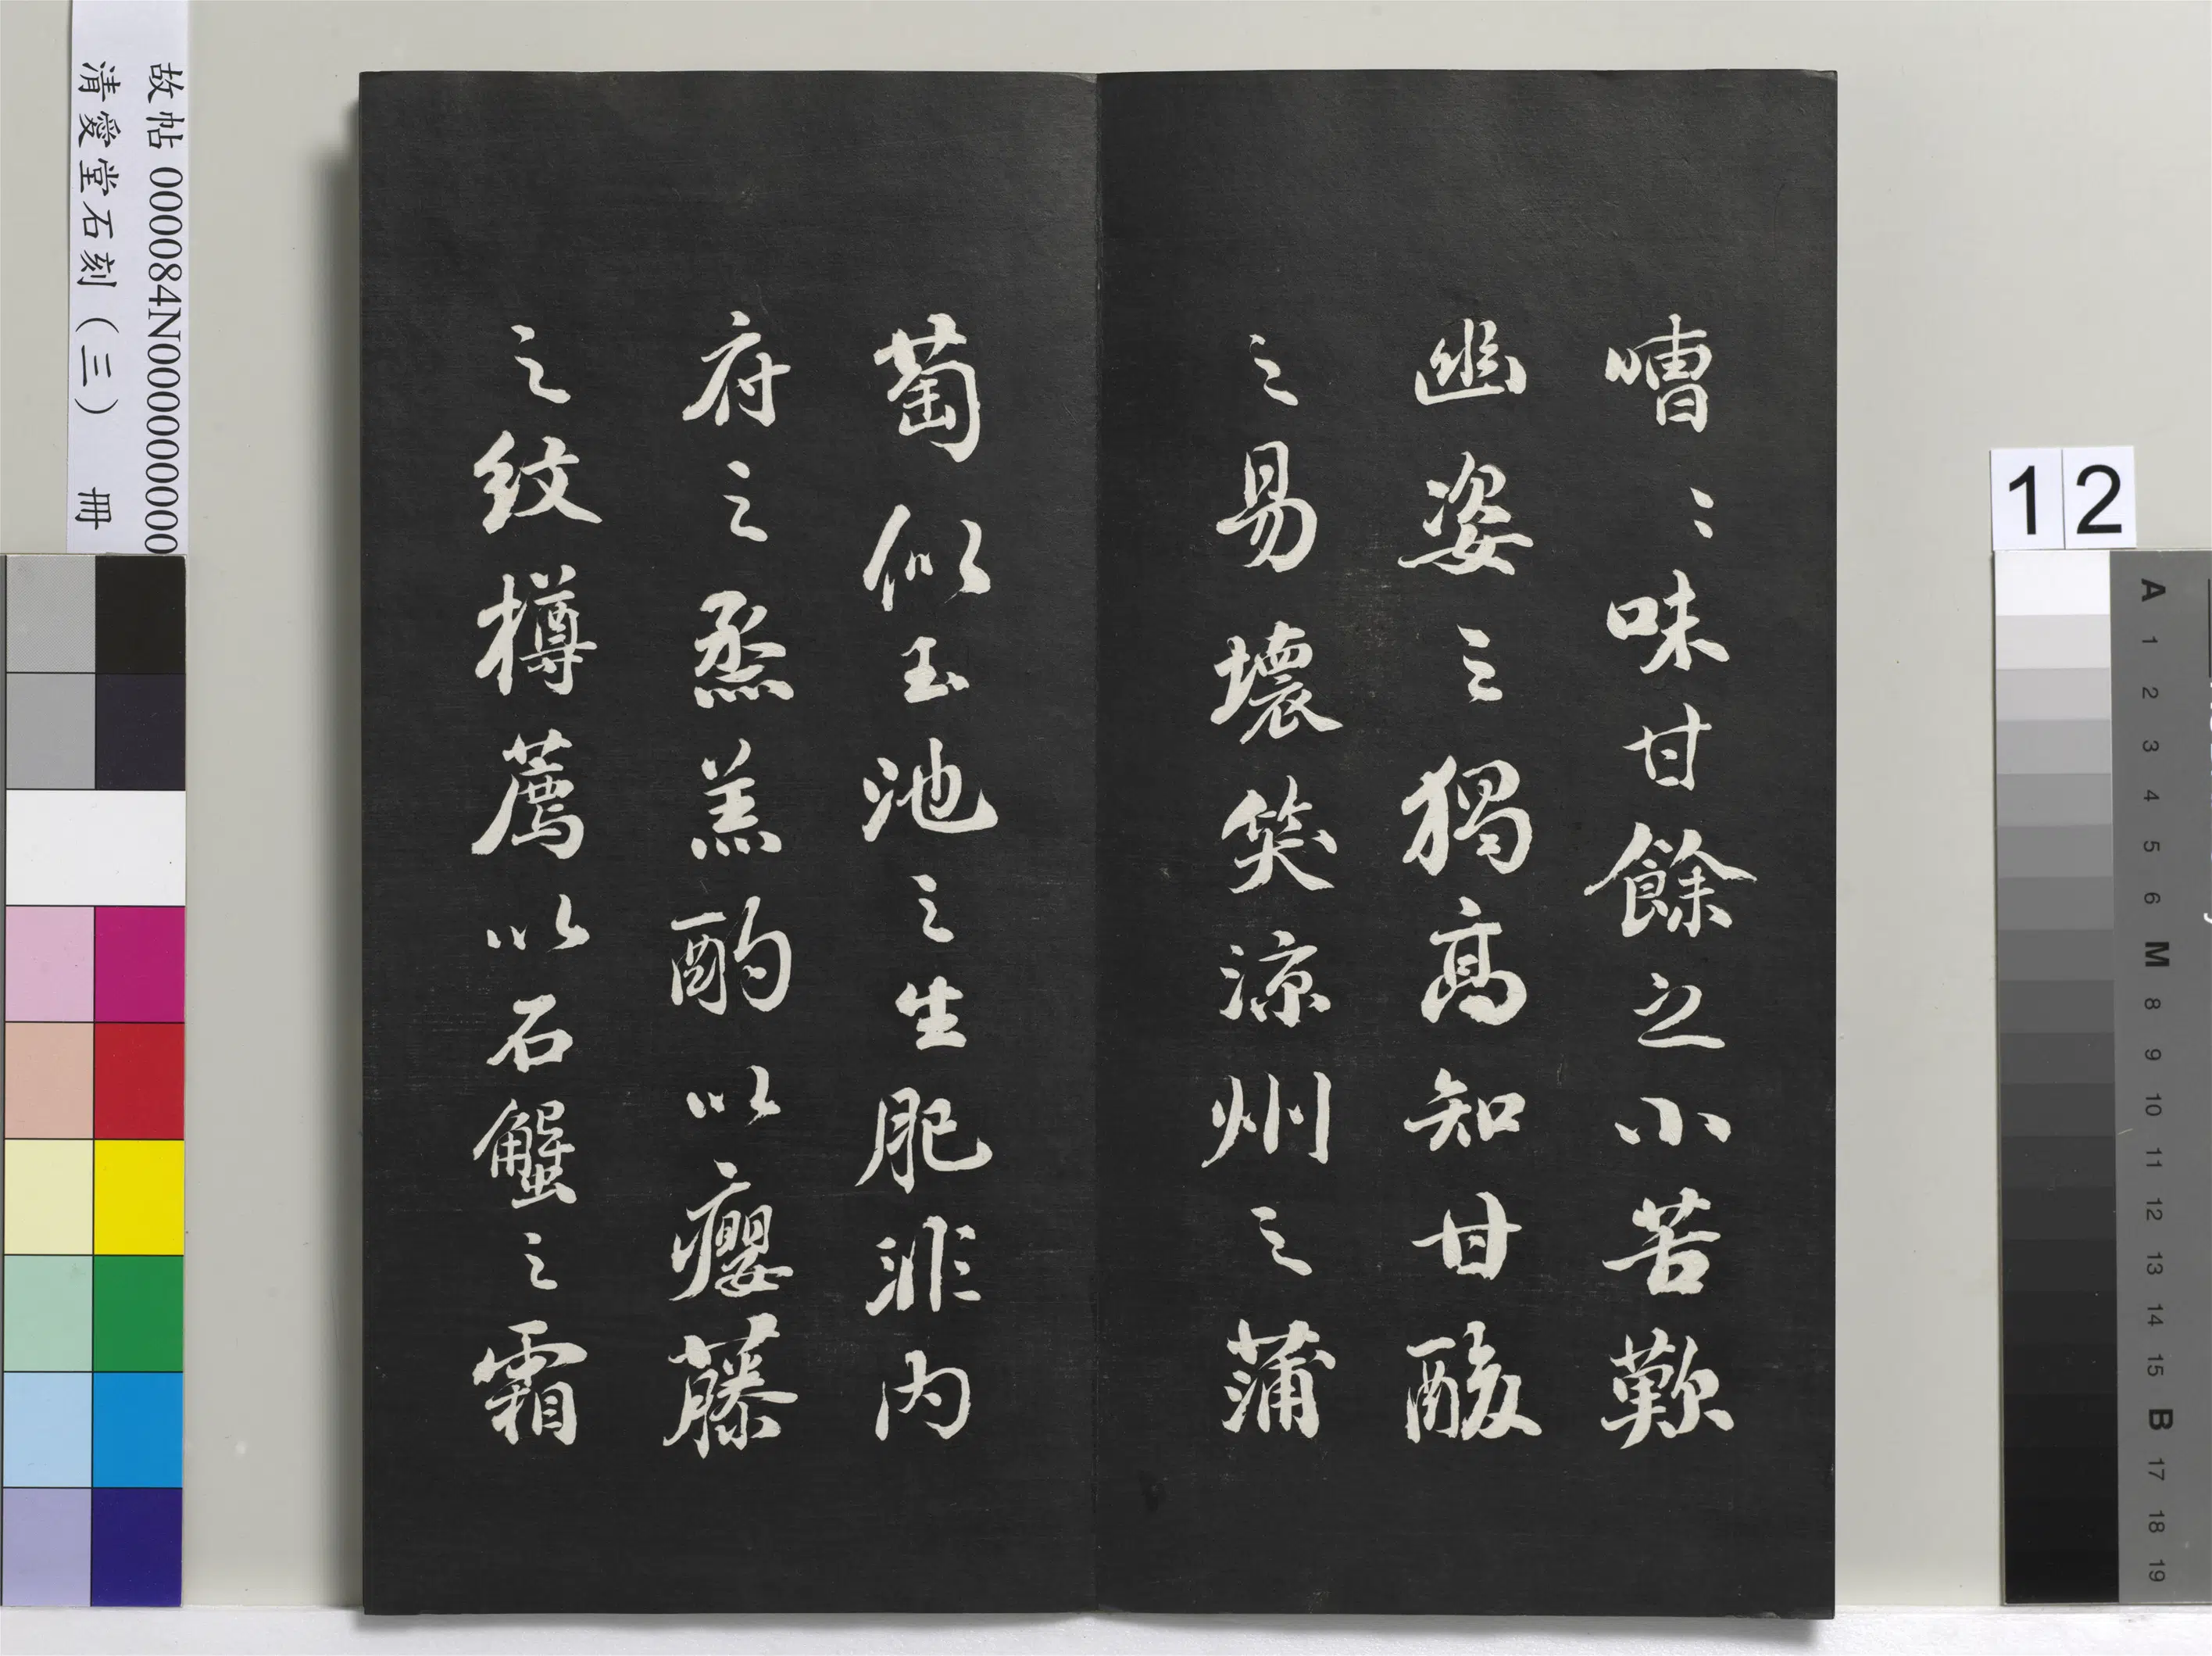 嘈〻味甘餘之小苦歎
幽姿之獨高知甘酸
之易壞笑涼州之蒲
萄似玉池之生肥非內
府之烝羔酌以癭藤
之紋樽薦以石蟹之霜
故帖 000084N000000000
清愛堂石刻（三） 冊
12
A 1 2 3 4 5 6 M 8 9 10 11 12 13 14 15 B 17 18 19